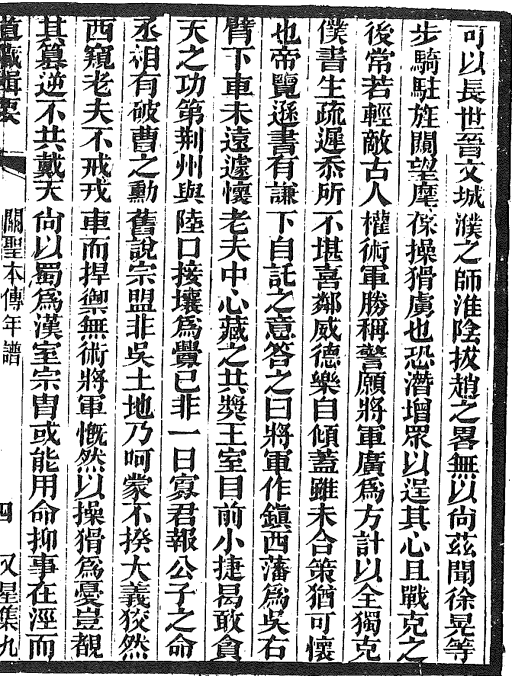 可以長世晉文城濮之師淮陰拔趙之畧無以尙茲聞徐晃等
步騎駐旌闚望麾葆操猾虜也恐潛增眾以逞其心且戰克之
後常若輕敵古人權術軍勝稱警願將軍廣爲方計以全獨克
僕書生疏遲忝所不堪喜鄰威德樂自傾蓋雖未合策猶可懷
也帝覽遜書有謙下自託之意答之曰將軍作鎭西藩爲吳右
臂下車未遠遽懷老夫中心藏之共奬王室目前小捷曷敢貪
天之功第荆州與陸口接壤爲釁已非一日寡君報公子之命
丞相有破曹之勳舊說宗盟非吳土地乃呵蒙不揆大義狡然
西窺老夫不戒戎車而捍禦無術將軍慨然以操猾爲憂豈覩
其篡逆不共戴天尙以蜀爲漢室宗胄或能用命抑事在涇而
道藏輯要 關聖本傳年譜 四 又星集九